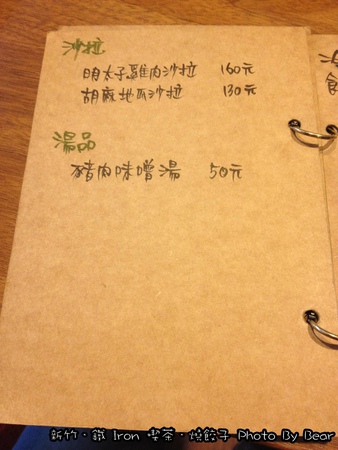 沙拉
明太子雞肉沙拉 160元
胡麻地瓜沙拉 130元
湯品
豬肉味噌湯 50元
新竹・鐵 Iron 喫茶・燒餃子 Photo By Bear